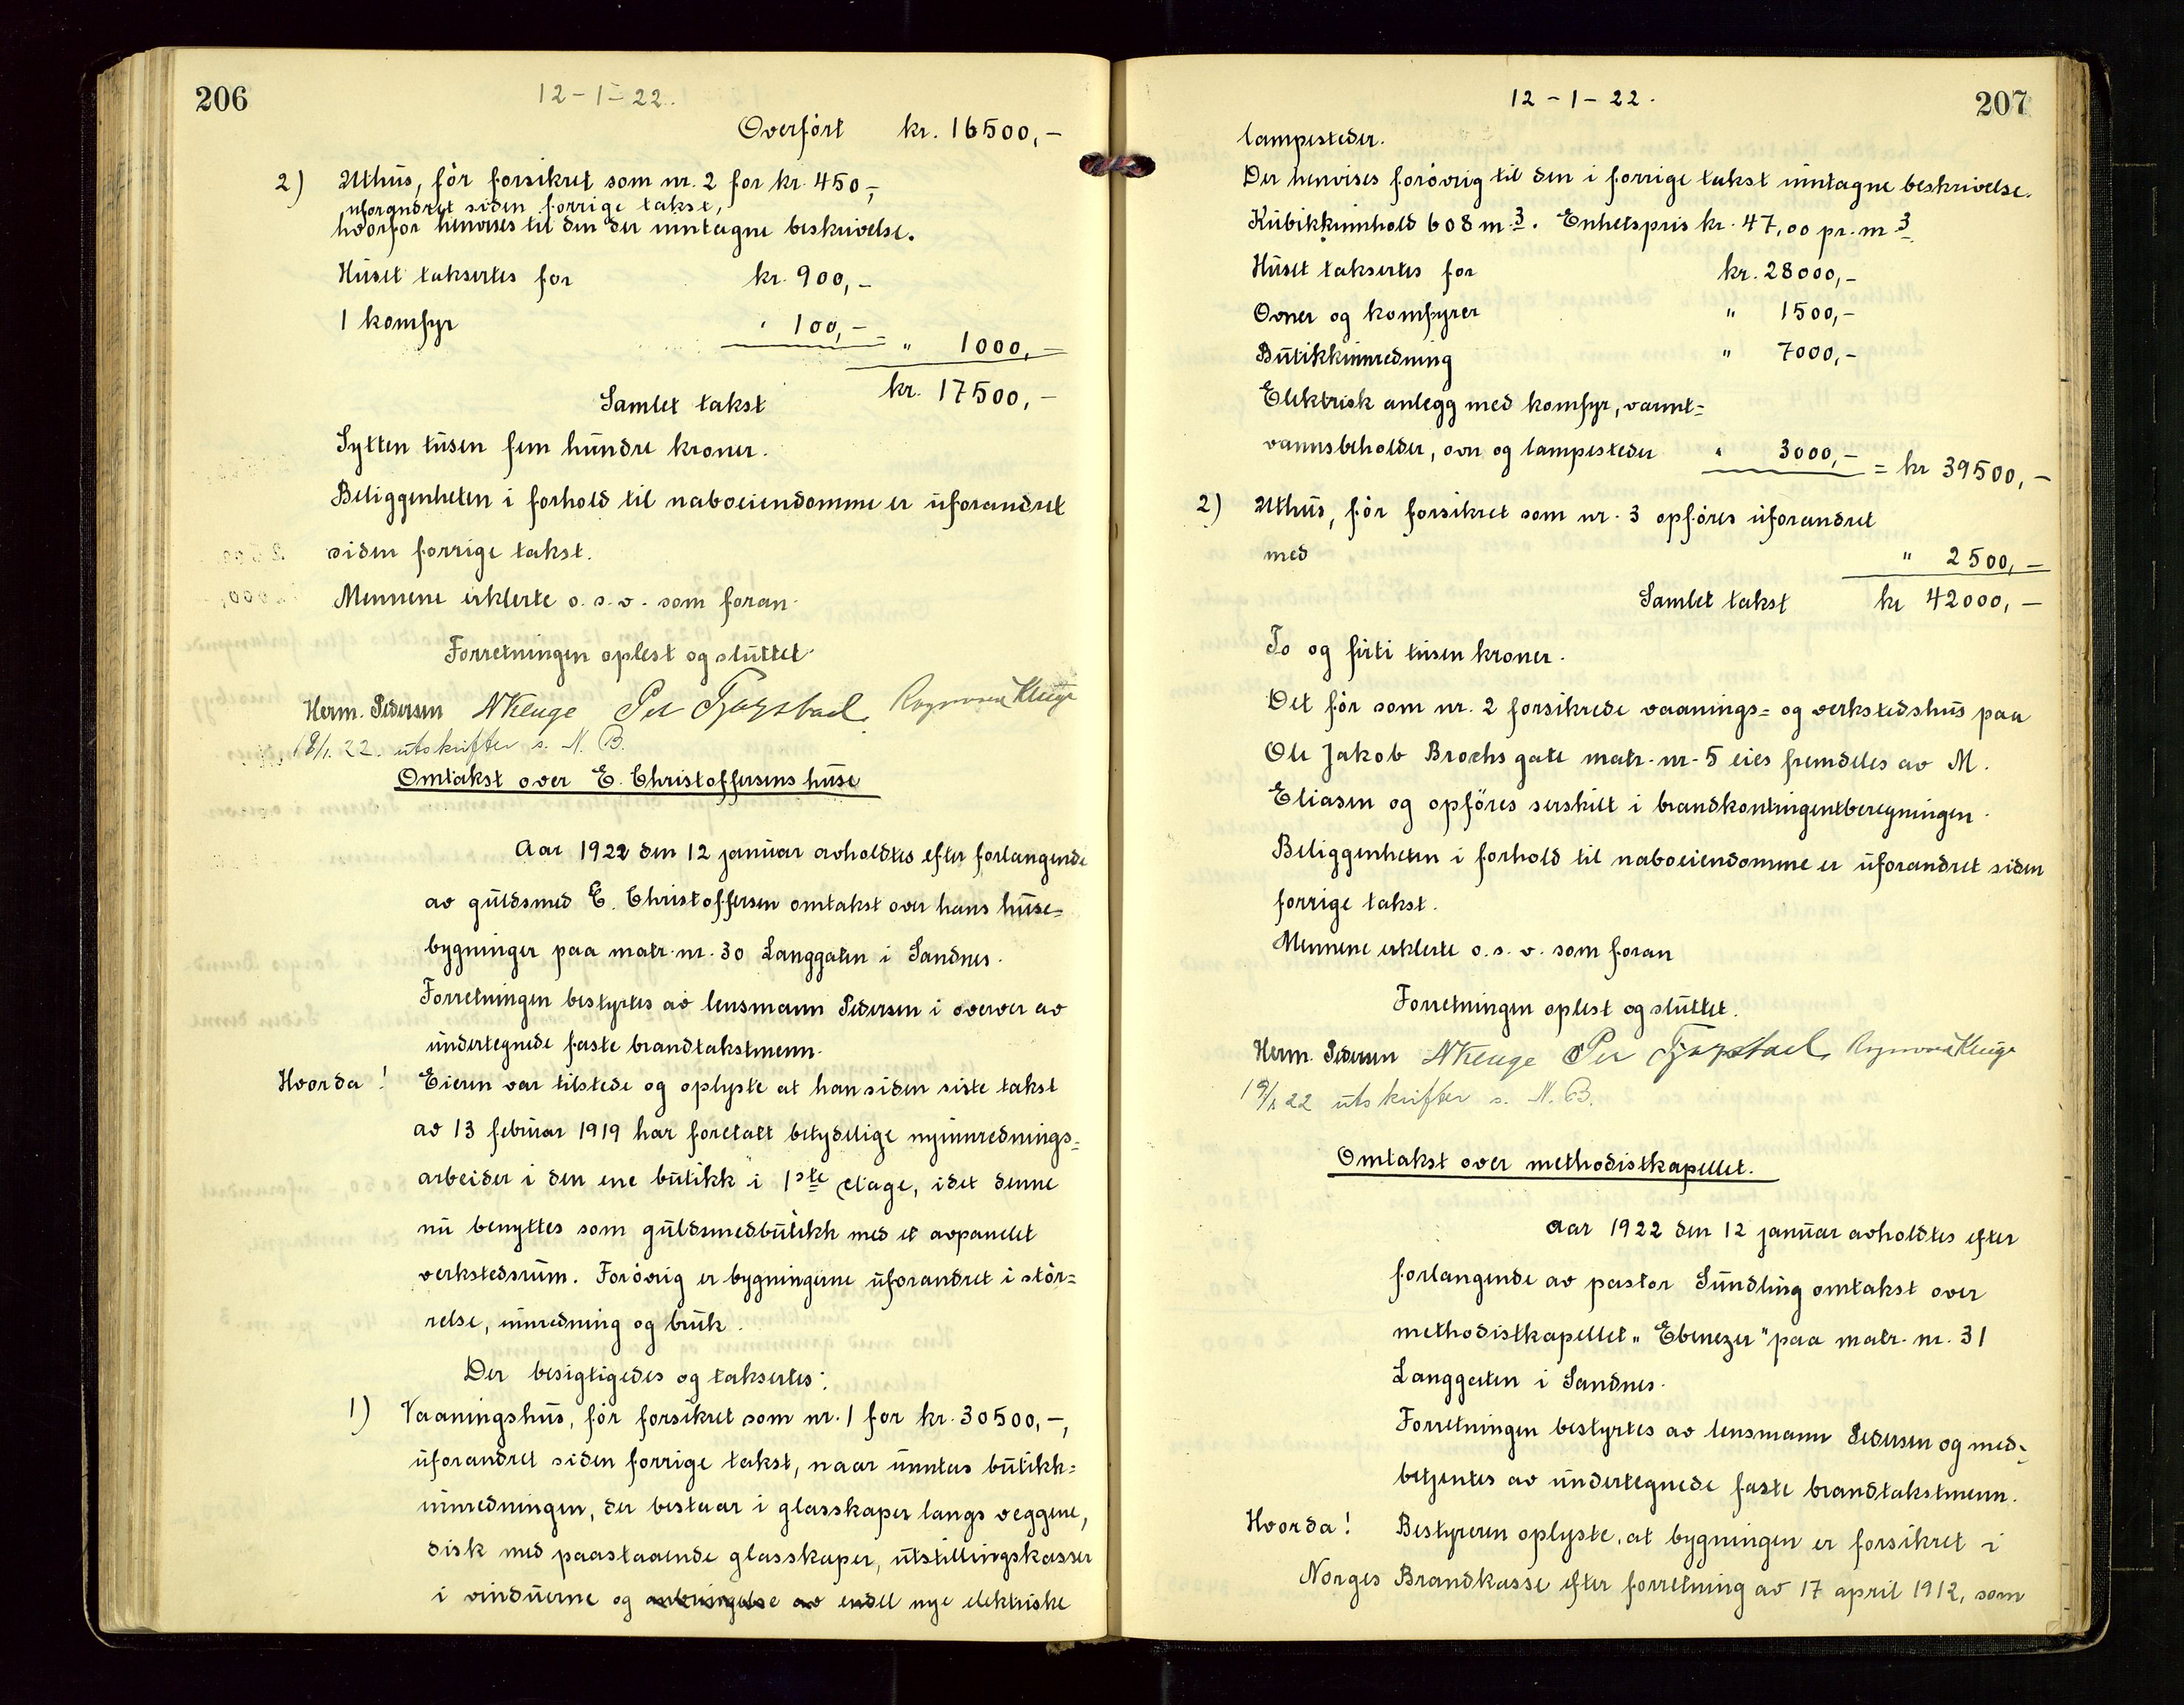 206
12-1-22.
Overført kr. 16500,-
2) Uthus, før forsikret som nr. 2 for kr. 450,-
uforandret siden forrige takst,
hvorfor henvises til den der inntagne beskrivelse.
Huset taksertes for kr. 900,-
1 komfyr " 100,- = " 1000,-
Samlet takst kr. 17500,-
Sytten tusen fem hundre kroner.
Beliggenheten i forhold til naboeiendomme er uforandret
siden forrige takst.
Mennene erklerte o.s.v. som foran.
Forretningen oplest og sluttet.
Herm. Pedersen
18/1.22. utskrifter s. N.B.
Omtakst over E. Christoffersens huse
Aar 1922 den 12 januar avholdtes efter forlangende
av guldsmed E. Christoffersen omtakst over hans huse=
bygninger paa matr. nr. 30 Langgaten i Sandnes.
Forretningen bestyrtes av lensmann Pedersen i overver av
undertegnede faste brandtakstmenn.
Hvorda! Eieren var tilstede og oplyste at han siden siste takst
av 13 februar 1919 har foretatt betydelige nyinnrednings=
arbeider i den ene butikk i 1ste etage, idet denne
nu benyttes som guldsmedbutikk med et avpanelet
verkstedsrum. Forøvrig er bygningerne uforandret i stør=
relse, innredning og bruk.
Der besigtigedes og taksertes:
1) Vaaningshus, før forsikret som nr. 1 for kr. 30500,-,
uforandret siden forrige takst, naar inntas butikk=
innredningen, der bestaar i glasskaper langs veggene,
disk med paastaaende glasskaper, utstillingskasser
i vinduerne og anbringelse av endel nye elektriske
12-1-22.
207
lampesteder.
Der henvises forøvrig til den i forrige takst inntagne beskrivelse.
Kubikkinnhold 608 m.3. Enhetspris kr. 47,00 pr. m3.
Huset taksertes for kr. 28000,-
Ovner og komfyrer " 1500,-
Butikkinnredning " 7000,-
Elektrisk anlegg med komfyr, varmt=
vannsbeholder, ovn og lampesteder " 3000,- = kr 39500,-
2) Uthus, før forsikret som nr. 3 opføres uforandret
med " 2500,-
Samlet takst kr 42000,-
To og firti tusen kroner.
Det før som nr. 2 forsikrede vaanings= og verkstedshus paa
Ole Jakob Brochs gate matr. nr. 5 eies fremdeles av M.
Eliasen og opføres serskilt i brandkontingentberegningen.
Beliggenheten i forhold til naboeiendomme er uforandret siden
forrige takst.
Mennene erklerte o.s.v. som foran
Forretningen oplest og sluttet.
Herm. Pedersen
19/1 22 utskrifter s. N.B.
Omtakst over methodistkapellet.
Aar 1922 den 12 januar avholdtes efter
forlangende av pastor Sundling omtakst over
methodistkapellet "Ebenezer" paa matr. nr. 31
Langgaten i Sandnes.
Forretningen bestyrtes av lensmann Pedersen og med=
betjentes av undertegnede faste brandtakstmenn.
Hvorda! Bestyreren oplyste, at bygningen er forsikret i
Norges Brandkasse efter forretning av 17 april 1912, som